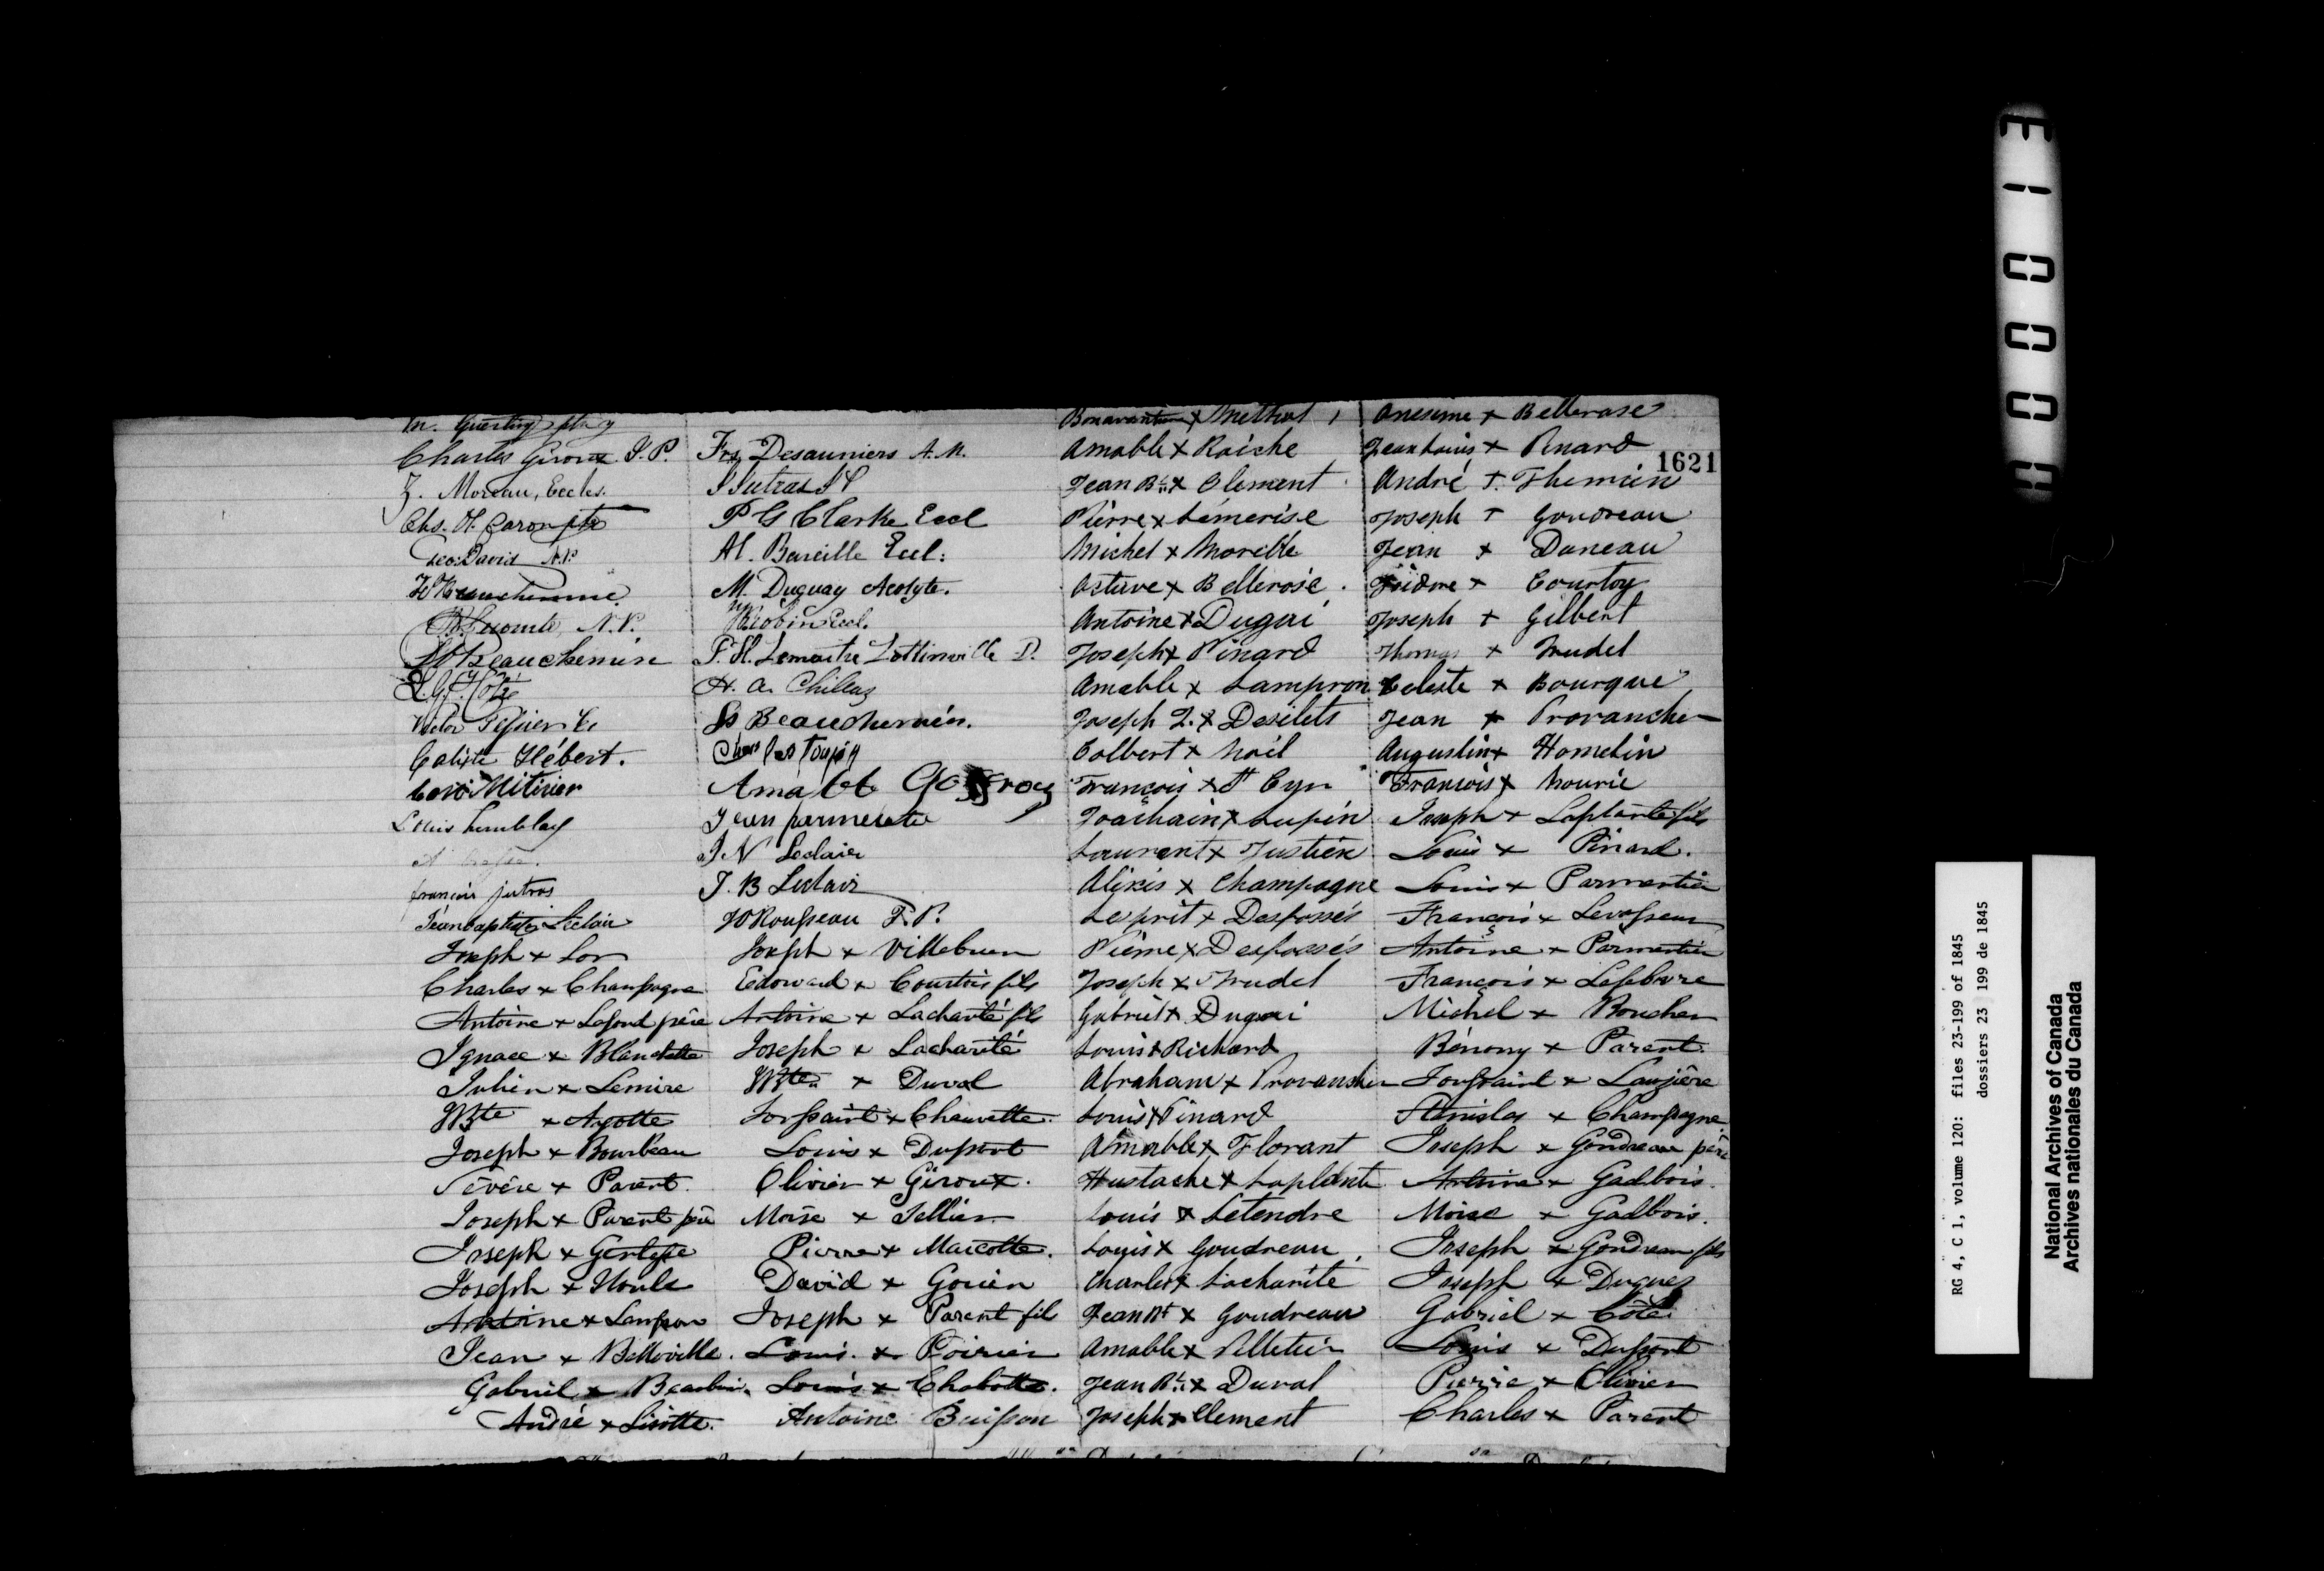 Bonaventure x Methot Onesime x Bellerose
Charles Giroux J.P. Frs Desauniers A.M. Amable x Raiche Jean Louis x Pinard
1621
Z. Moreau, Eccles. J Jutras Jean Bte x Clement André x Themien
Chs. H. Caron ptre P G Clarke Eccl Pierre x Lémerise Joseph x Goudreau
Geo. David N.P. Al. Bareille Eccl. Michel x Morelle Jean x Daneau
M. Duguay Acolyte. Octave x Bellerose Isidore x Courtoy
N.P. Robin Eccl. Antoine x Dugai Joseph x Gilbert
Beauchemin P. H. Lemaitre Lottinville P. Joseph x Pinard Thomas x Trudel
H. a. Chillas Amable x Lampron Celeste x Bourque
Victor Beauchemin. Joseph L. x Desilets Jean x Provancher
Calixte Hébert. Charles Toupin Colbert x Noël Augustin x Hamelin
Amable Geoffroy François x St Cyr François x Mourie
Louis Tremblay Jean parmelete Joachain x Lupien Joseph x Laplante fils
J N Leclair Laurent x Justien Louis x Pinard.
françois jutras J. B Leclair Alixis x Champagne Louis x Parmentier
Jean baptiste Leclair Rousseau P.P. Lesprit x Desfossés François x Levasseur
Joseph x Lor Joseph x Villebrun Pierre x Desfossés Antoine x Parmentier
Charles x Champagne Edouard x Courtois fils Joseph x Trudel François x Lefebvre
Antoine x Lafond père Antoine x Lacharité fils Gabriel x Dugai Michel x Boucher
Ignace x Blanchette Joseph x Lacharité Louis x Richard Bénony x Parent
Julien x Lemire JBte x Duval Abraham x Provancher Toussaint x Lauzière
JBte x Ayotte Toussaint x Chauvette Louis x Pinard Stanislas x Champagne
Joseph x Bourbeau Louis x Dupont Amable x Florant Joseph x Goudreau père
Sévère x Parent. Olivier x Giroux. Hustache x Laplante Antoine x Gadbois.
Joseph x Parent père Moïse x Tellier Louis x Letendre Moise x Gadbois.
Joseph x Pierre x Marcotte. Louis x Goudreau Joseph x Goudreau fils
Joseph x Houle David x Gouin Charles x Lacharité Joseph x Duguay
Antoine x Lampron Joseph x Parent fils Jean Bt x Goudreau Gabriel x Coté
Jean x Belleville. Louis x Poirier Amable x Pelletier Louis x Dupont
Gabriel x Louis x Chabotte. Jean Bte x Duval Pierre x Olivier
André x Lisotte. Antoine Buisson Joseph x Clement Charles x Parent
RG 4, C 1, volume 120: files 23-199 of 1845
dossiers 23 199 de 1845
National Archives of Canada
Archives nationales du Canada